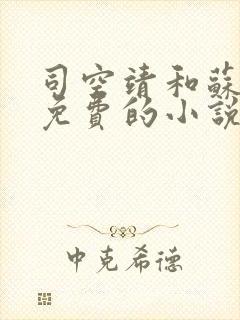 司空靖和蘇
免費的小說
中克希德